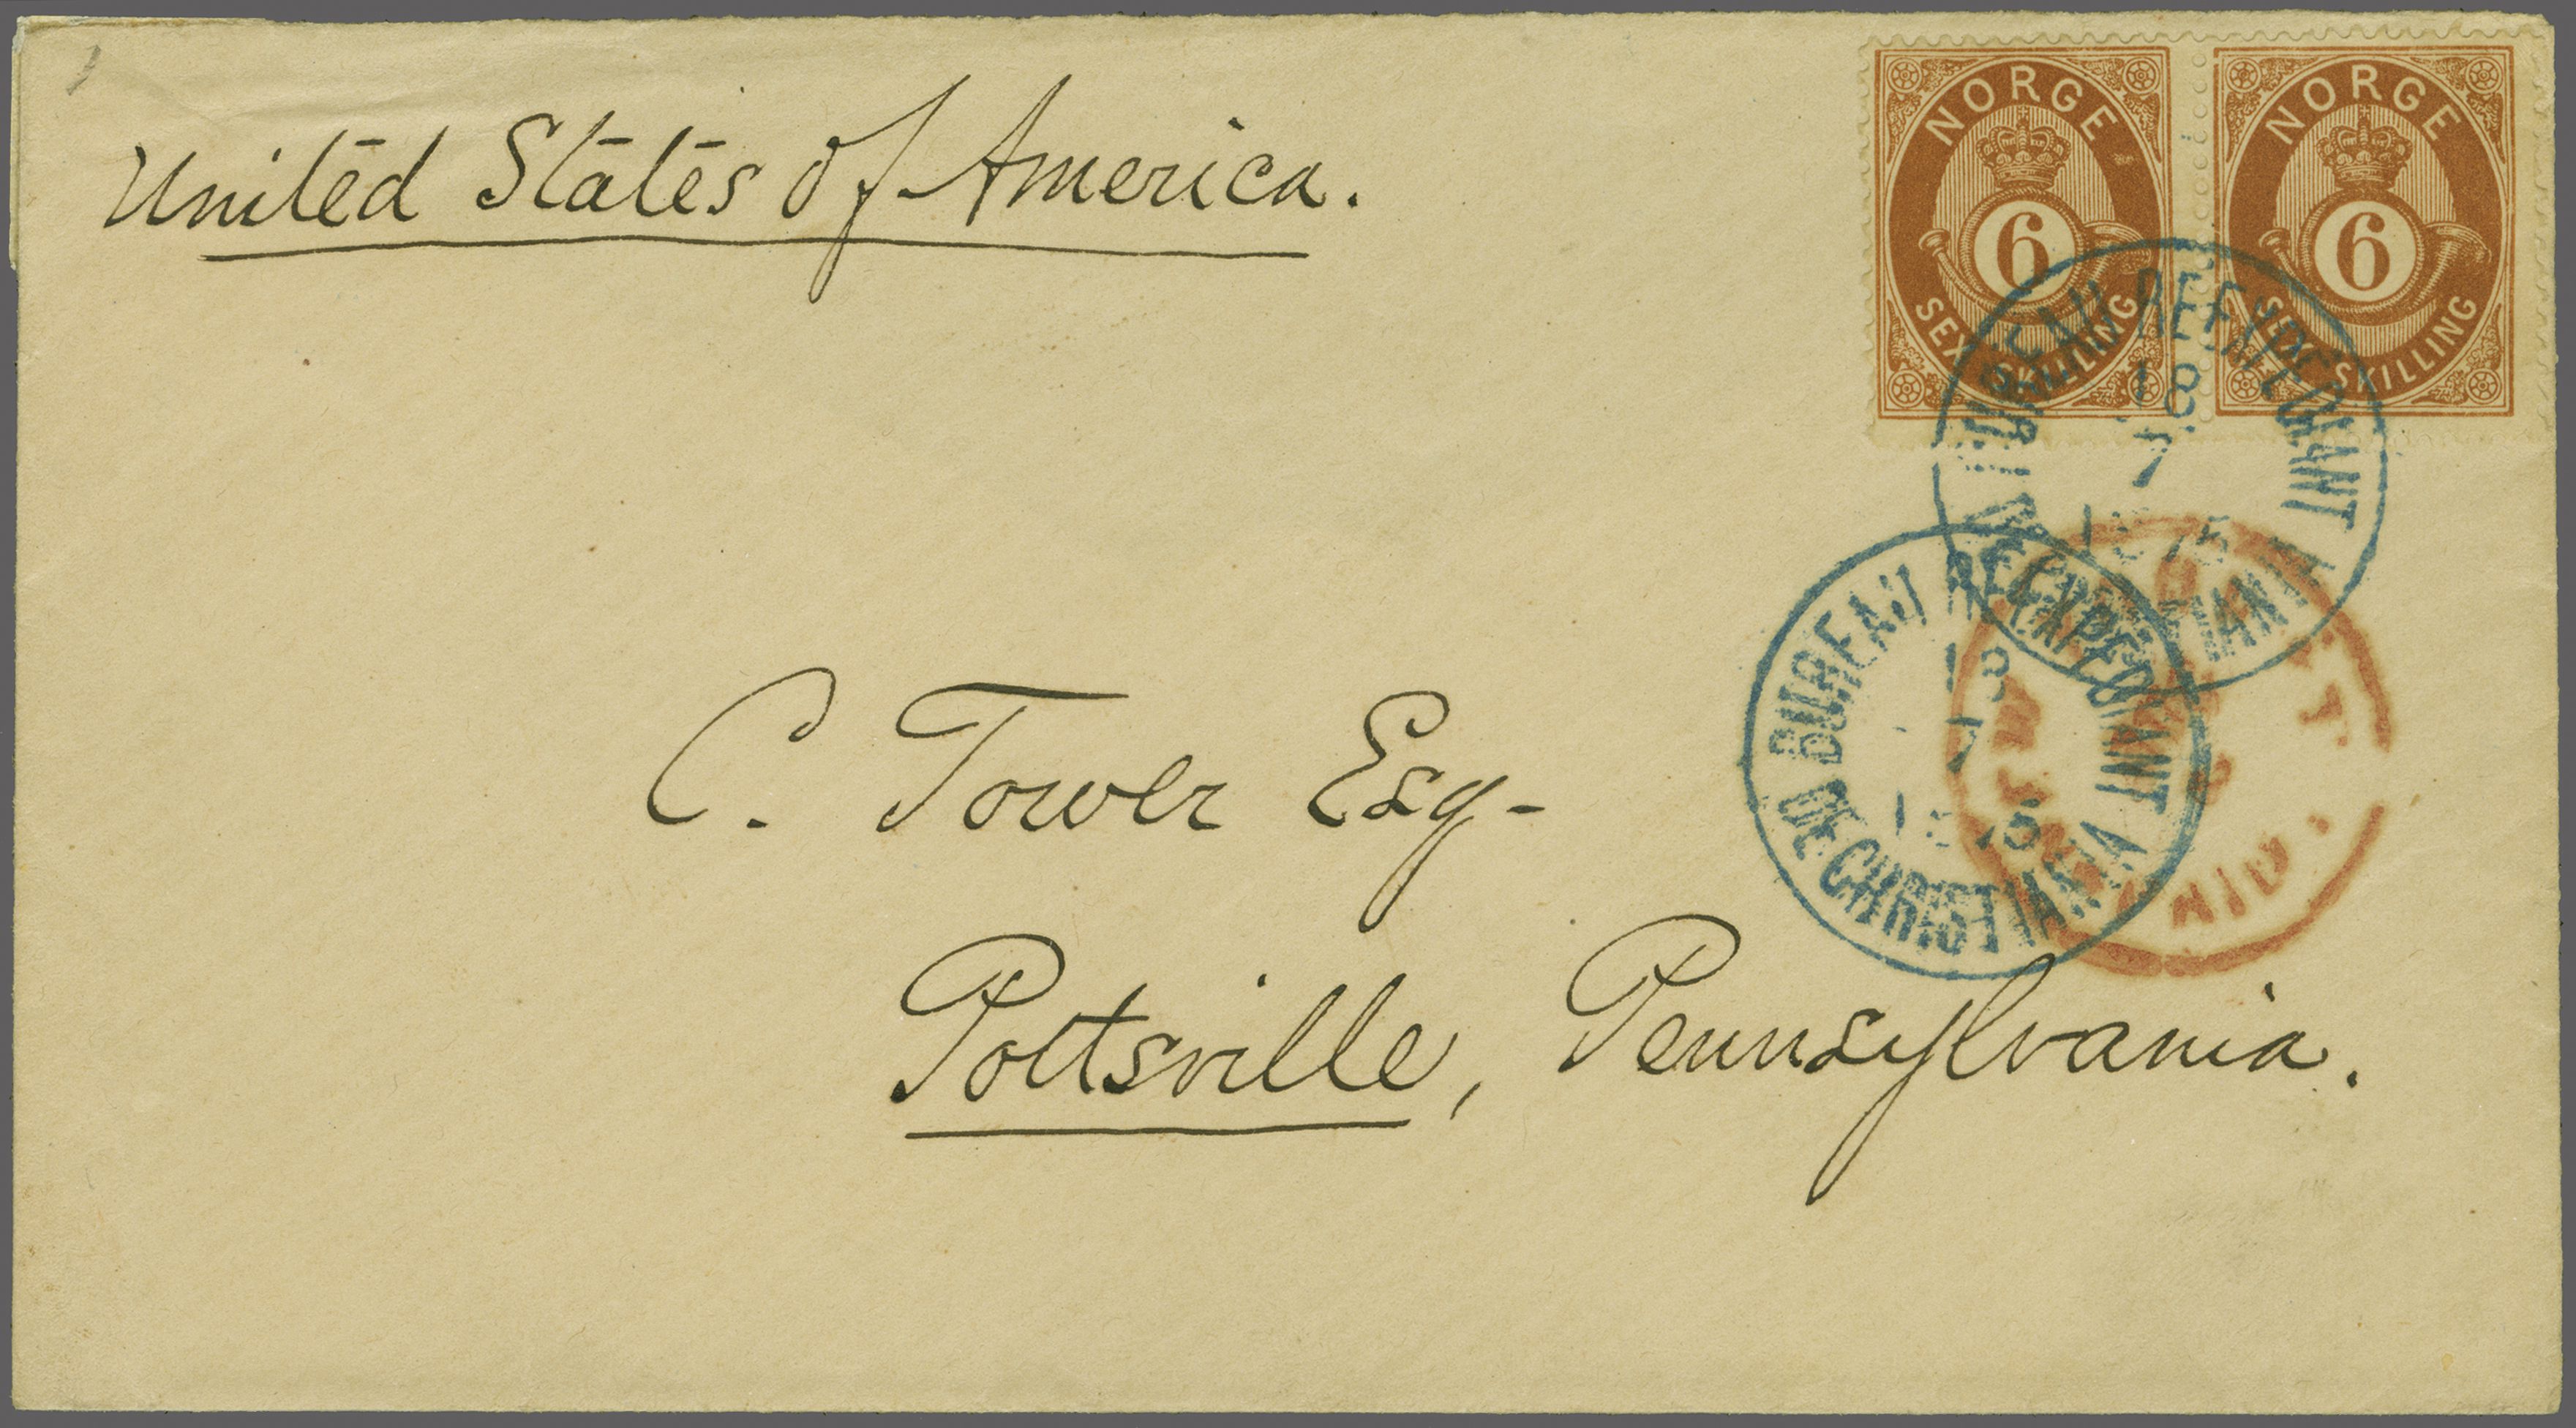 United States of America.
NORGE
6
SEX SKILLING
NORGE
6
SEX SKILLING
BUREAU REEXPEDIANT
18
7
BUREAU REEXPEDIANT
18
7
DE CHRISTIANIA
C. Tower Esq-
Pottsville, Pennsylvania.